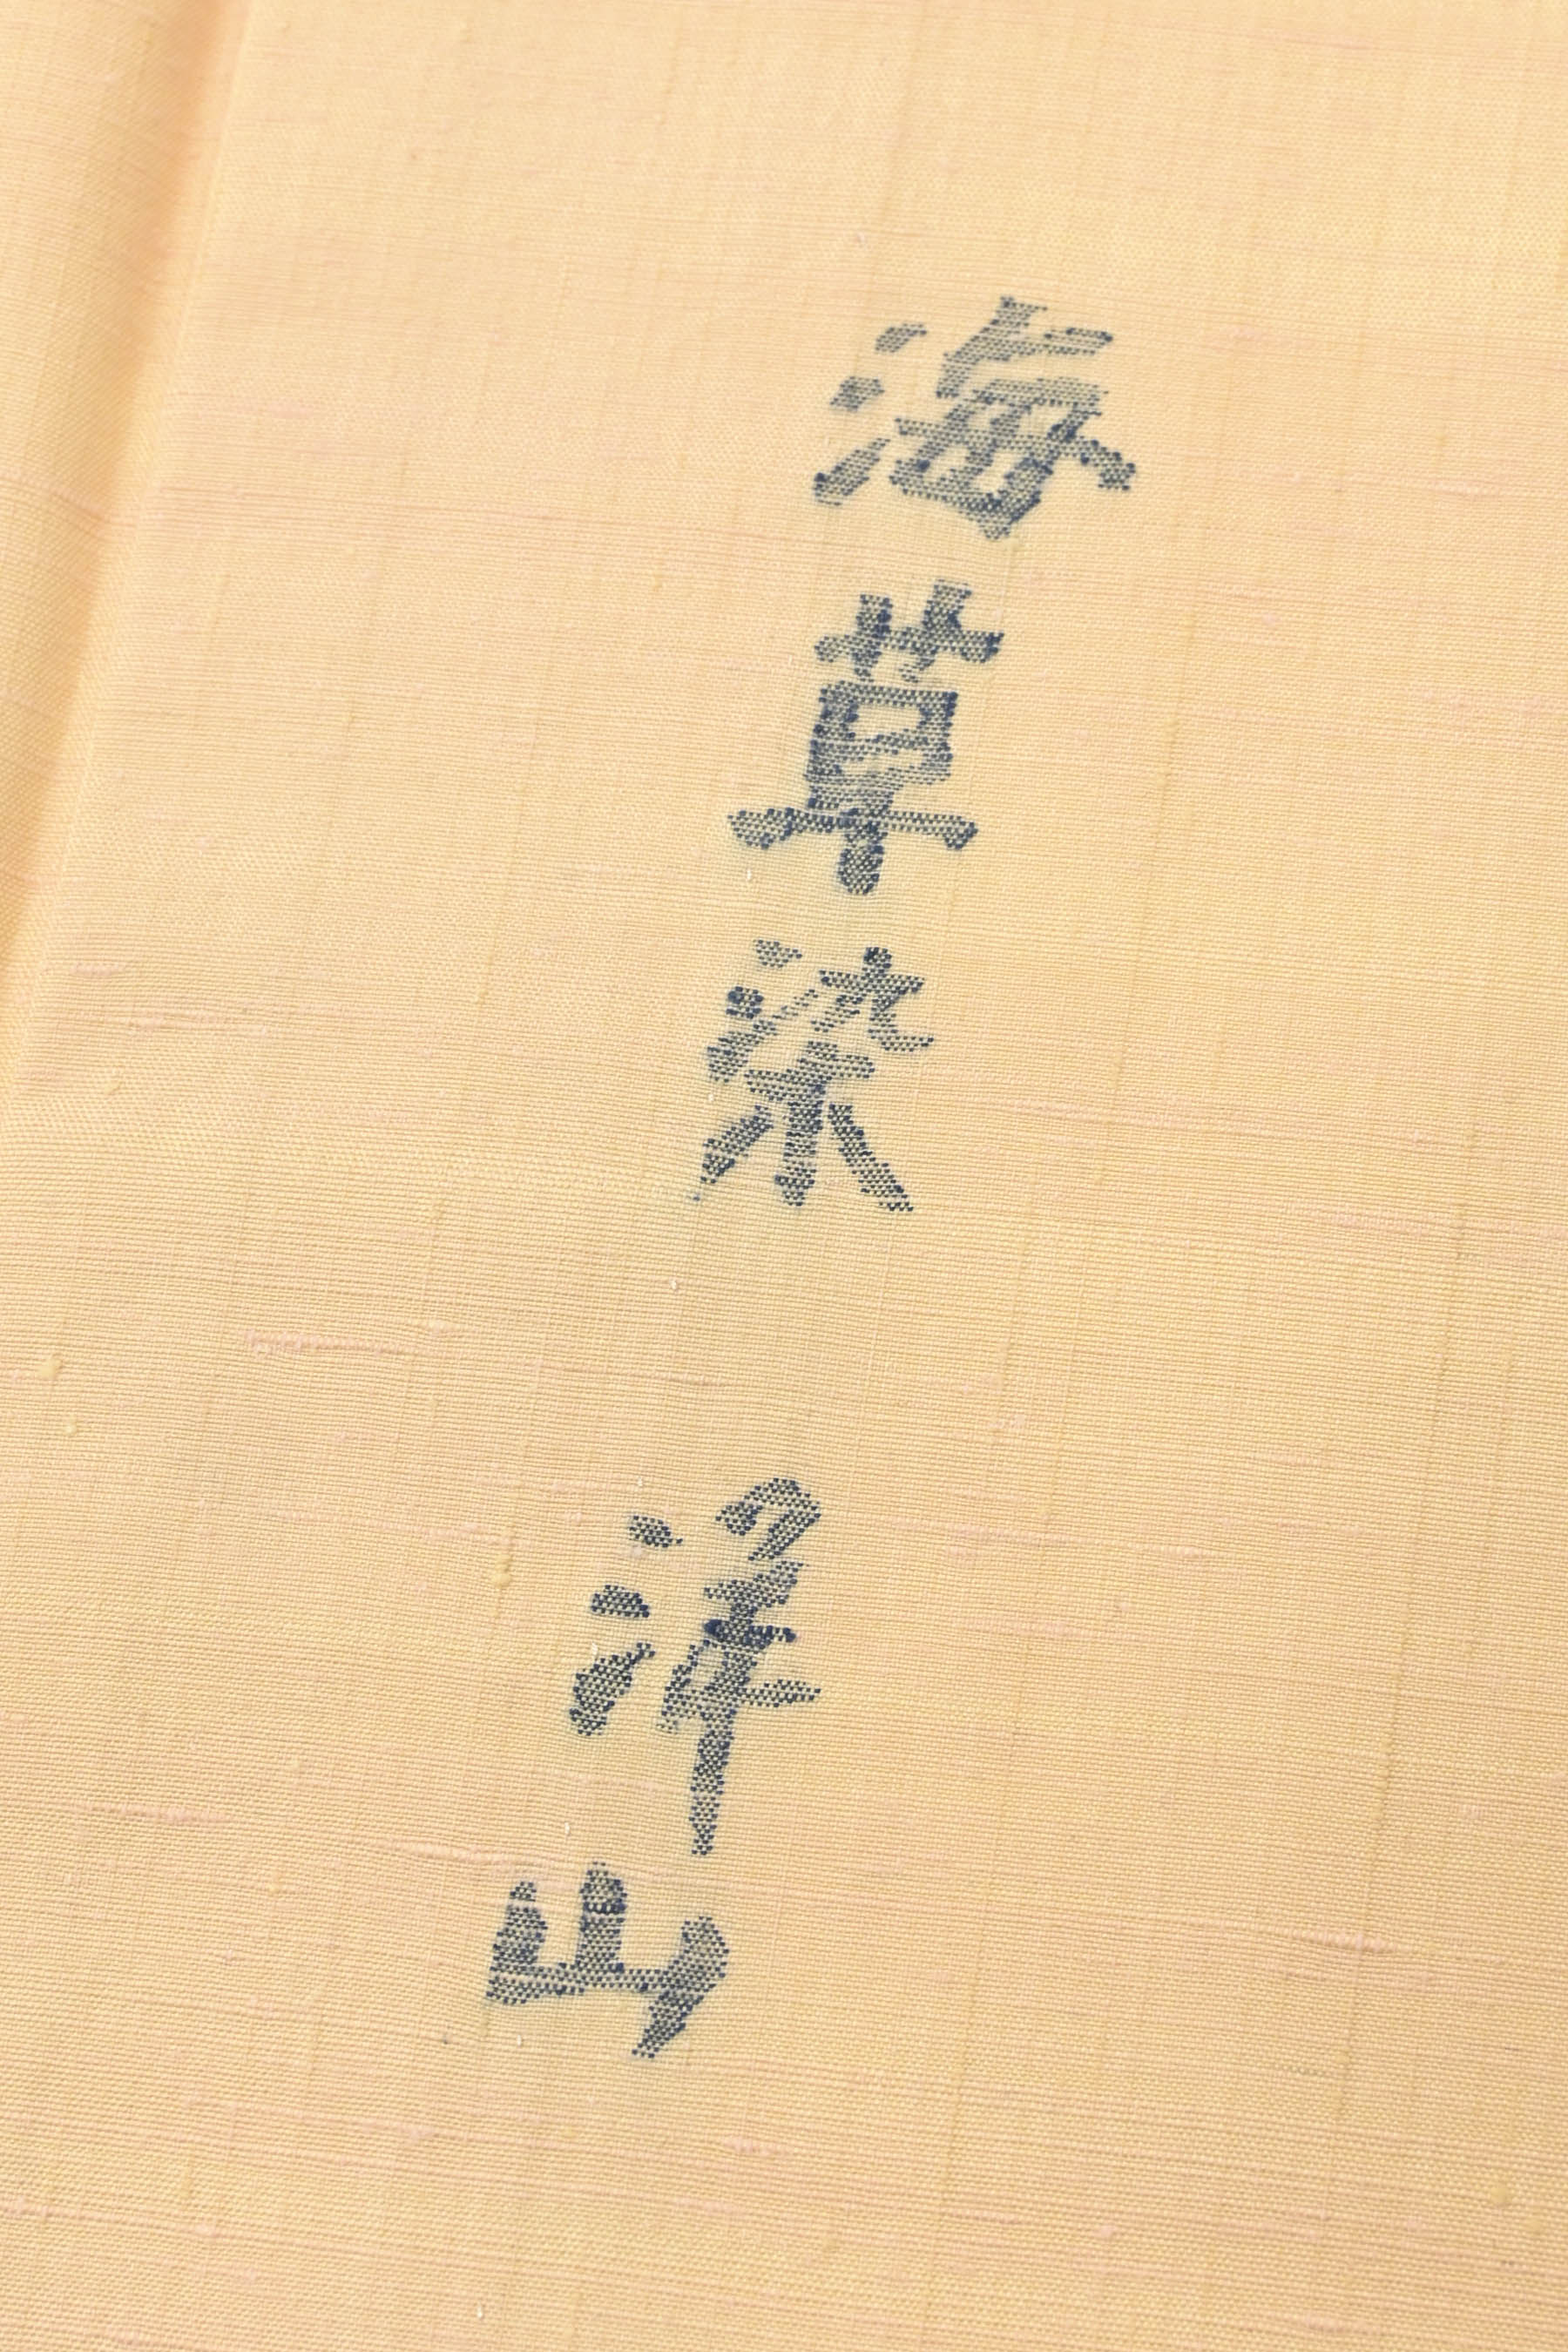 海草染 山